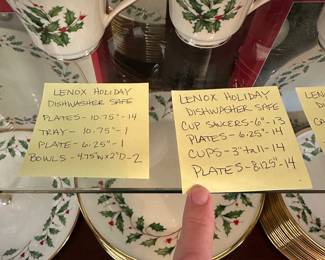 LENOX HOLIDAY
DISHWASHER SAFE
PLATES - 10.75" - 14
TRAY - 10.75" - 1
PLATE - 6.25" - 1
BOWLS - 4.75"W x 2"D - 2
LENOX HOLIDAY
DISHWASHER SAFE
CUP SAUCERS - 6" - 13
PLATES - 6.25" - 14
CUPS - 3" tall - 14
PLATES - 8.25" - 14